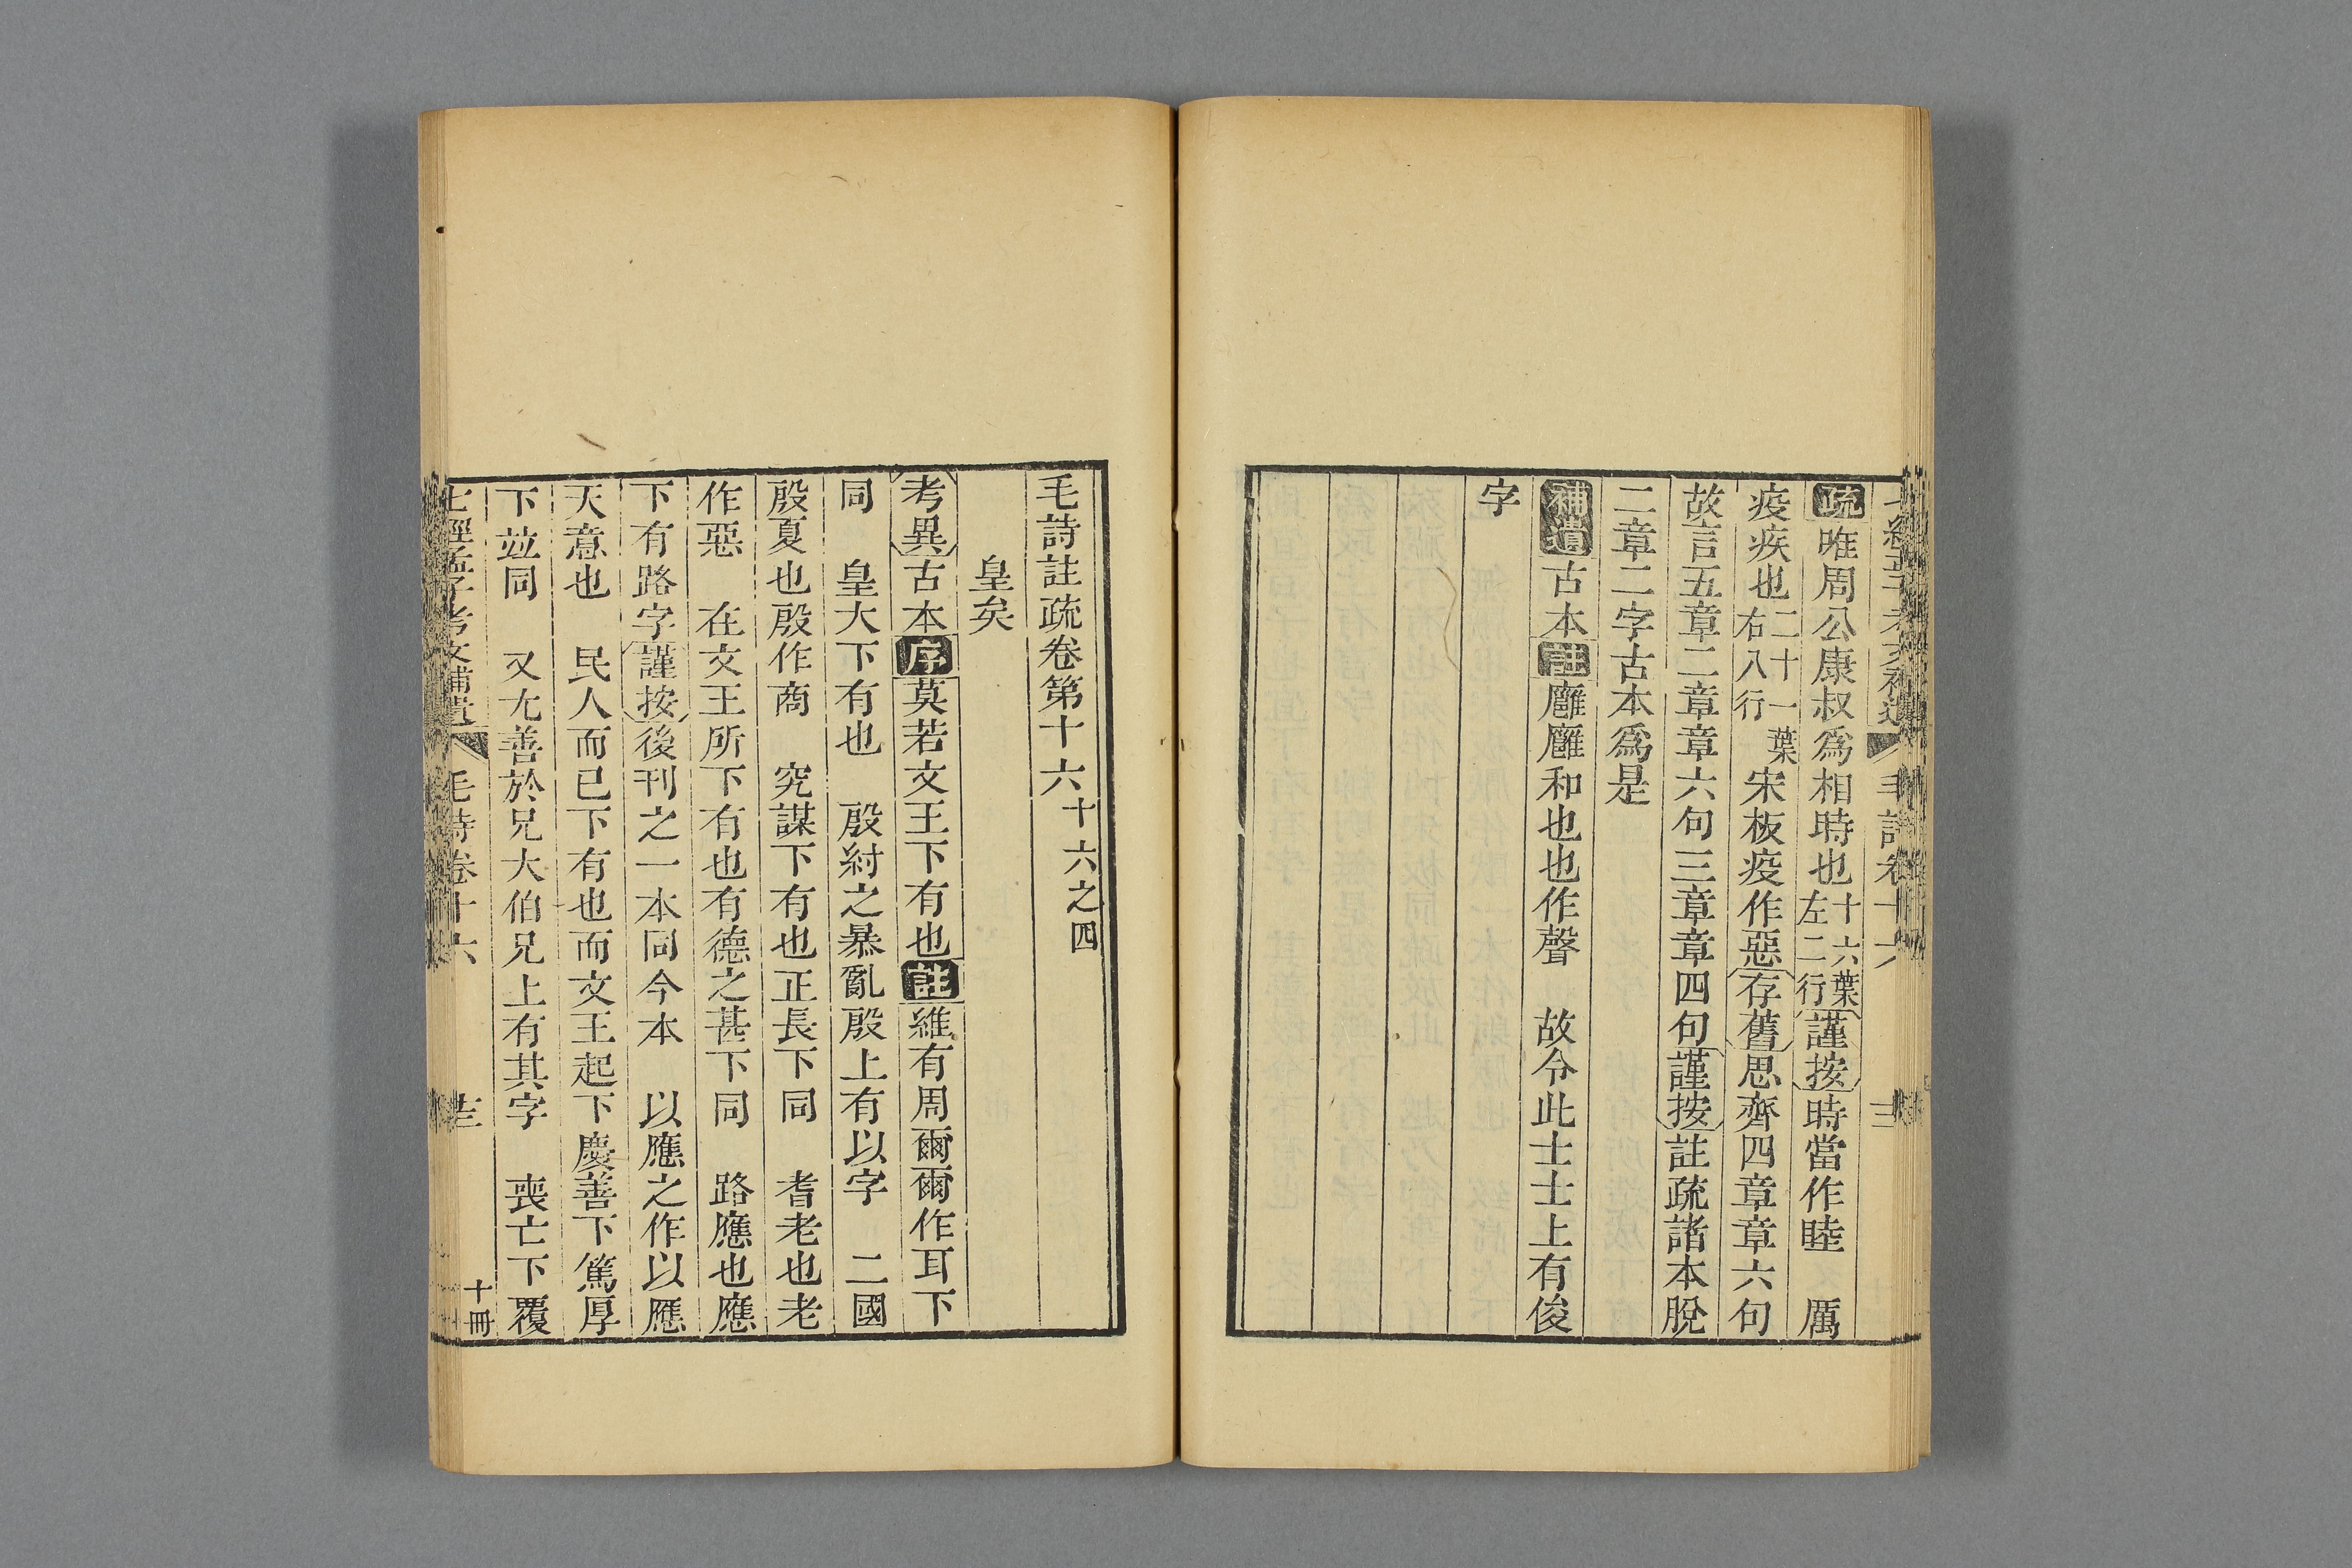 疏唯周公康叔爲相時也十六葉左二行謹按時當作睦　厲
疫疾也二十一葉右八行宋板疫作惡存舊思齊四章章六句
故言五章二章章六句三章章四句謹按註疏諸本脫
二章二字古本爲是
補遺古本註廱廱和也也作聲　故令此士士上有俊
字
毛詩註疏卷第十六十六之四
皇矣
考異古本序莫若文王下有也註維有周爾爾作耳下
同　皇大下有也　殷紂之暴亂殷上有以字　二國
殷夏也殷作商　究謀下有也正長下同　耆老也老
作惡　在文王所下有也有德之甚下同　路應也應
下有路字謹按後刊之一本同今本　以應之作以應
天意也　民人而已下有也而文王起下慶善下篤厚
下竝同　又尤善於兄大伯兄上有其字　喪亡下覆
七經孟子考文補遺　毛詩卷十六　十冊